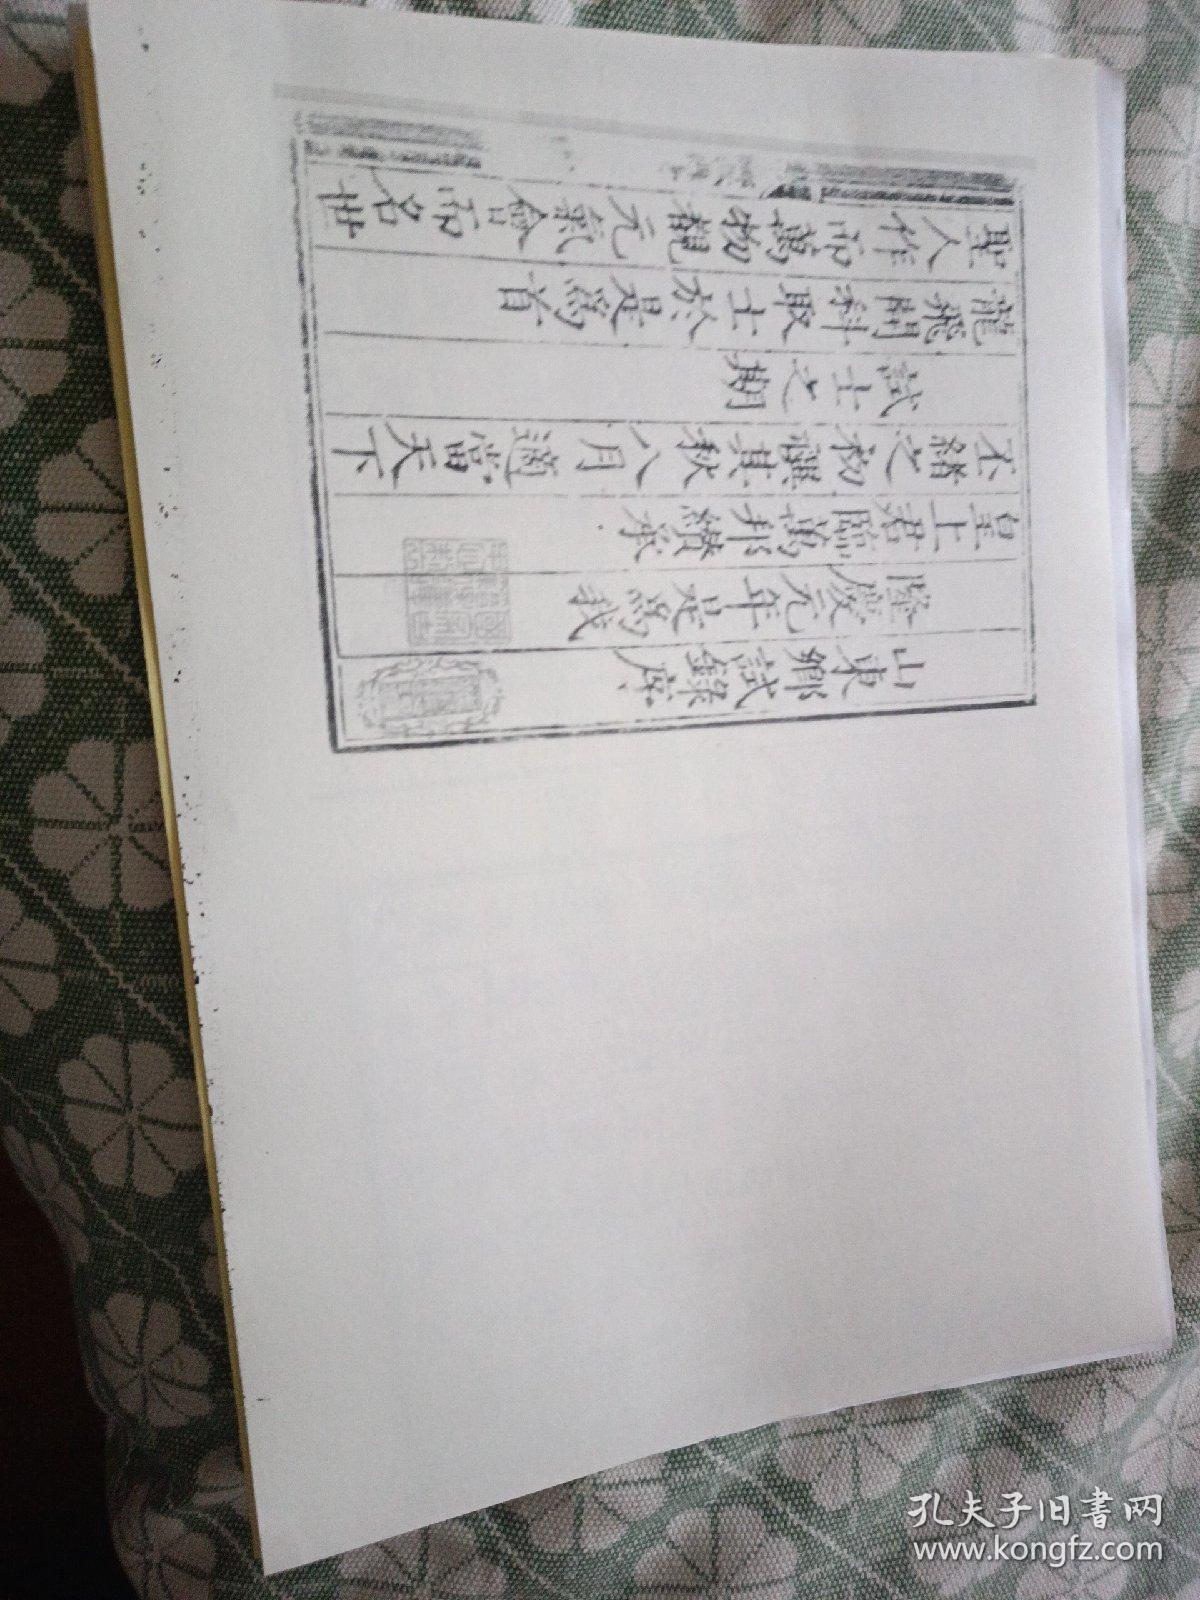 山東鄉試錄序
隆慶元年是爲我
皇上君臨萬邦纘承
丕緒之初禩其秋八月適當天下
試士之期
龍飛開科取士於是爲首
聖人作而萬物覩元氣會而名世
孔夫子旧書网
www.kongfz.com